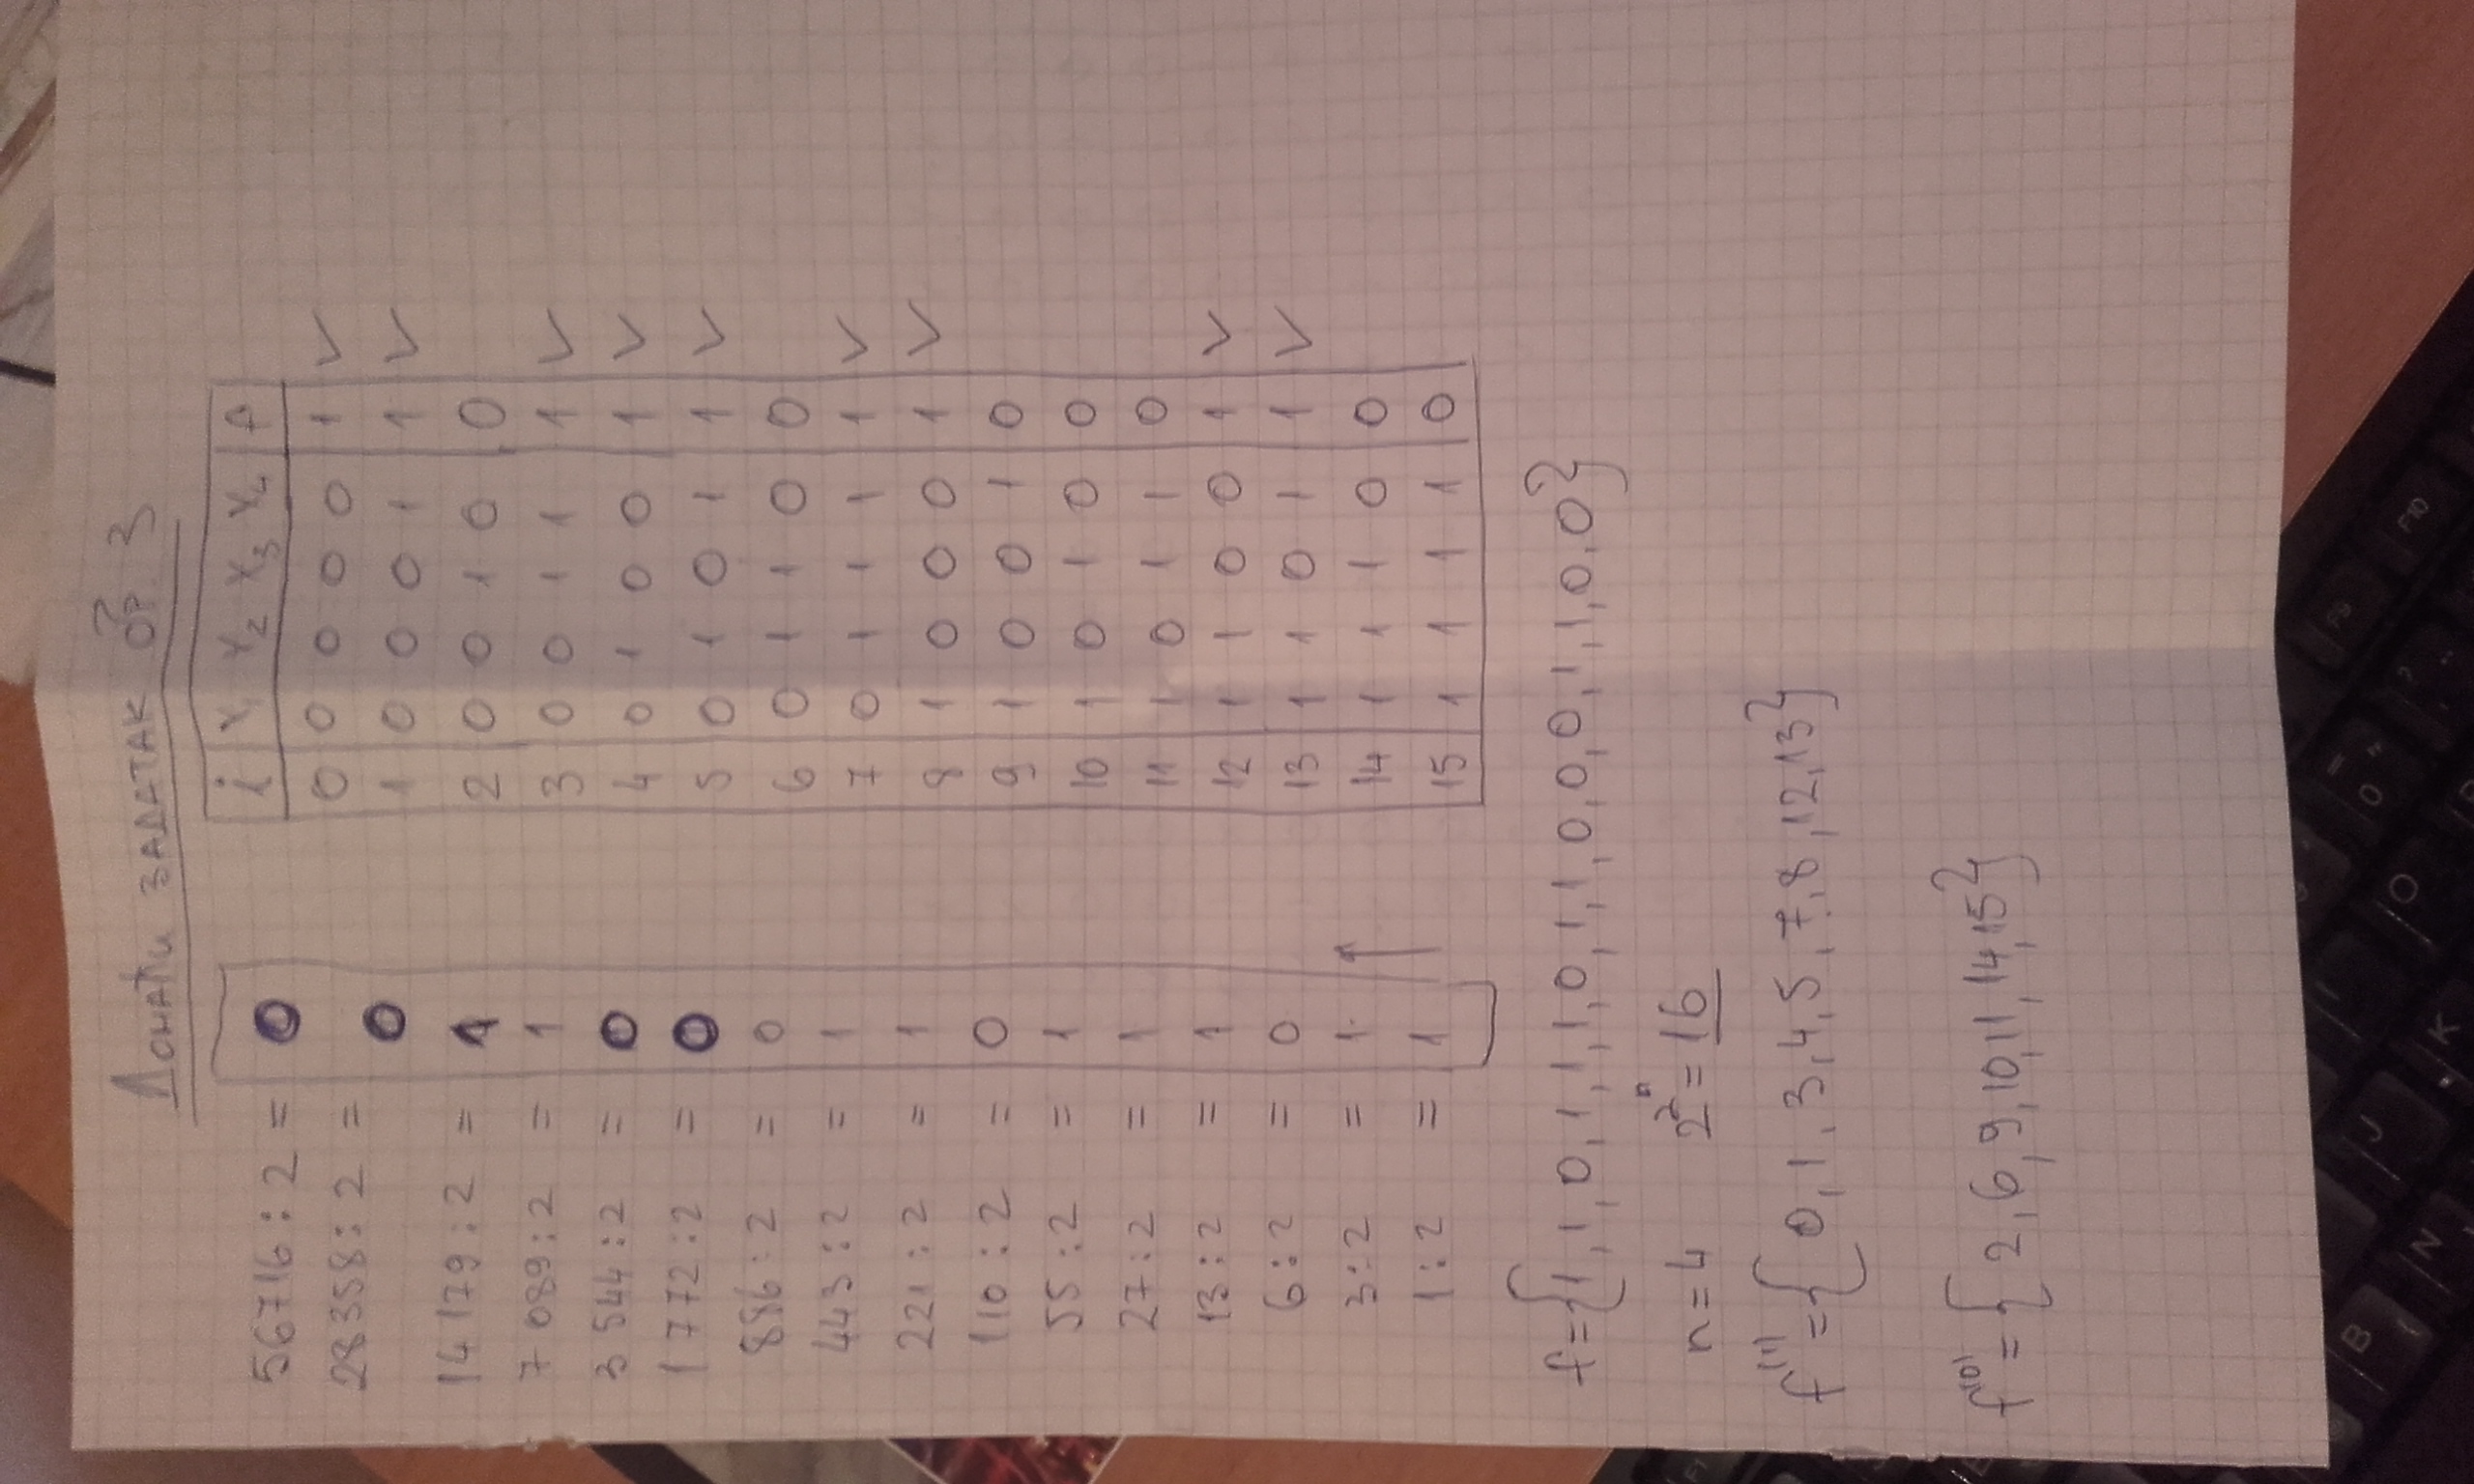 Домаћи задатак бр. 3
56716 : 2 = 0
28358 : 2 = 0
14179 : 2 = 1
7089 : 2 = 1
3544 : 2 = 0
1772 : 2 = 0
886 : 2 = 0
443 : 2 = 1
221 : 2 = 1
110 : 2 = 0
55 : 2 = 1
27 : 2 = 1
13 : 2 = 1
6 : 2 = 0
3 : 2 = 1
1 : 2 = 1
i X₁ X₂ X₃ X₄ f
0 0 0 0 0 1 ✓
1 0 0 0 1 1 ✓
2 0 0 1 0 0
3 0 0 1 1 1 ✓
4 0 1 0 0 1 ✓
5 0 1 0 1 1 ✓
6 0 1 1 0 0
7 0 1 1 1 1 ✓
8 1 0 0 0 1 ✓
9 1 0 0 1 0
10 1 0 1 0 0
11 1 0 1 1 0
12 1 1 0 0 1 ✓
13 1 1 0 1 1 ✓
14 1 1 1 0 0
15 1 1 1 1 0
f={1,1,0,1,1,1,0,1,1,0,0,0,1,1,0,0}
n=4 2^2^n=16
f⁽¹⁾={0,1,3,4,5,7,8,12,13}
f⁽⁰⁾={2,6,9,10,11,14,15}
B
N
J
K
O
F9
F10